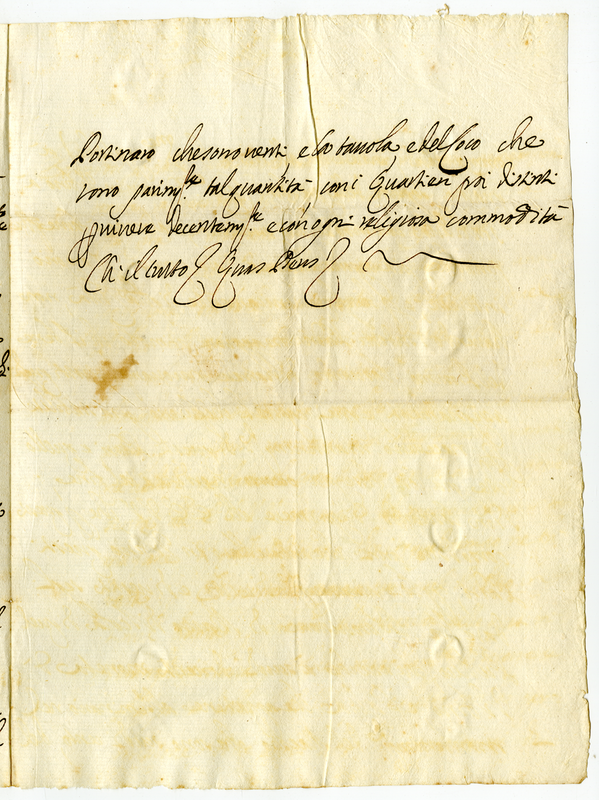 Portinaro che sono venti e la tavola e del Coco che
sono parimte tal quantità con i Quartieri poi distinti
p vivere decentemte e con ogni religiosa commodità
il tutto